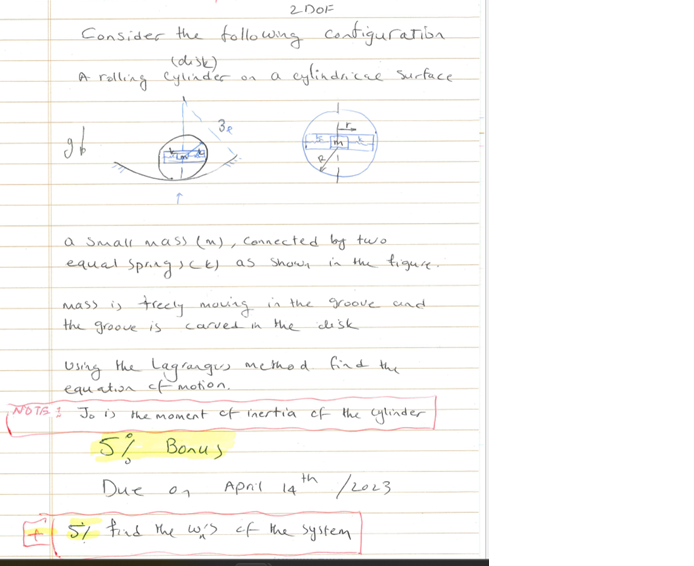 2 DOF
Consider the following configuration
(disk)
A rolling cylinder on a cylindrical surface
3R
g
k m k
r
k m k
R
a small mass (m), connected by two
equal springs (k) as shown in the figure.
mass is freely moving in the groove and
the groove is carved in the disk
Using the Lagranges method find the
equation of motion.
NOTE: Jo is the moment of inertia of the cylinder
5% Bonus
Due on April 14th /2023
+ 5% find the wn's of the system